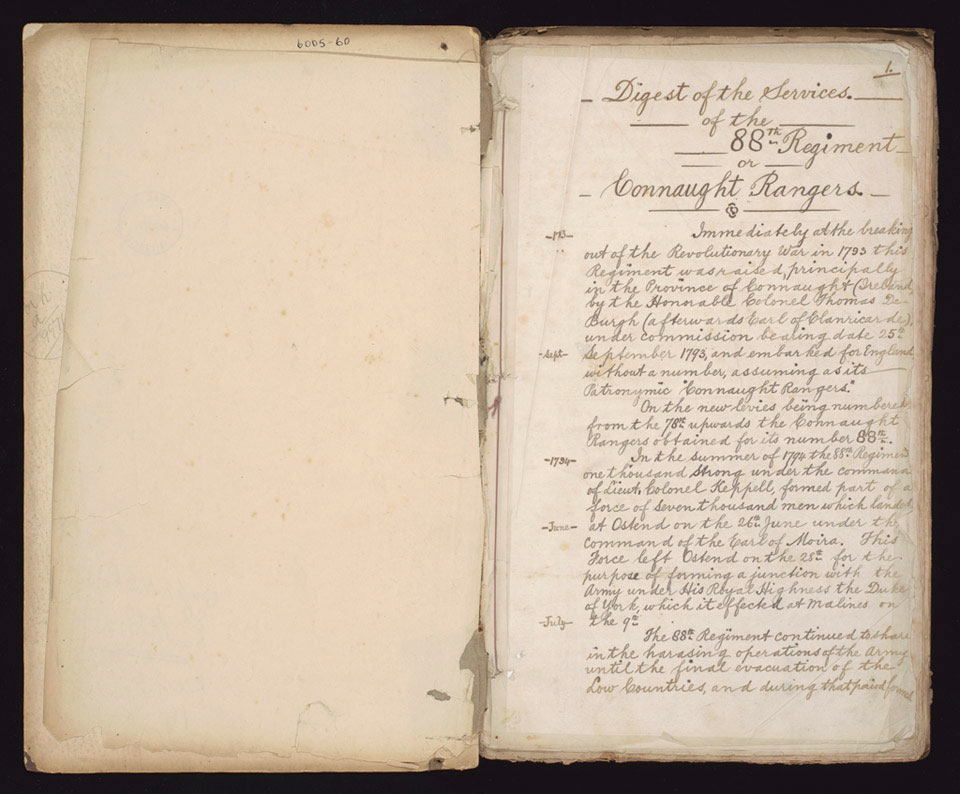 6005-60
1.
Digest of the Services.
of the
88th Regiment
or
Connaught Rangers.
Immediately at the breaking
out of the Revolutionary War in 1793 this
Regiment was raised, principally
in the Province of Connaught (Ireland)
by the Honorable Colonel Thomas De
Burgh (afterwards Earl of Clanricarde),
under commission bearing date 25th
-Sept- September 1793, and embarked for England
without a number, assuming as its
Patronymic "Connaught Rangers."
On the new levies being numbered
from the 78th upwards the Connaught
Rangers obtained for its number 88th.
-1794- In the summer of 1794 the 88th Regiment
one thousand strong under the command
of Lieut. Colonel Keppell, formed part of a
force of seven thousand men which landed
-June- at Ostend on the 26th June under the
command of the Earl of Moira. This
Force left Ostend on the 28th for the
purpose of forming a junction with the
Army under His Royal Highness the Duke
of York, which it effected at Malines on
-July- the 9th
The 88th Regiment continued to share
in the harasing operations of the Army
until the final evacuation of the
Low Countries, and during that period formed